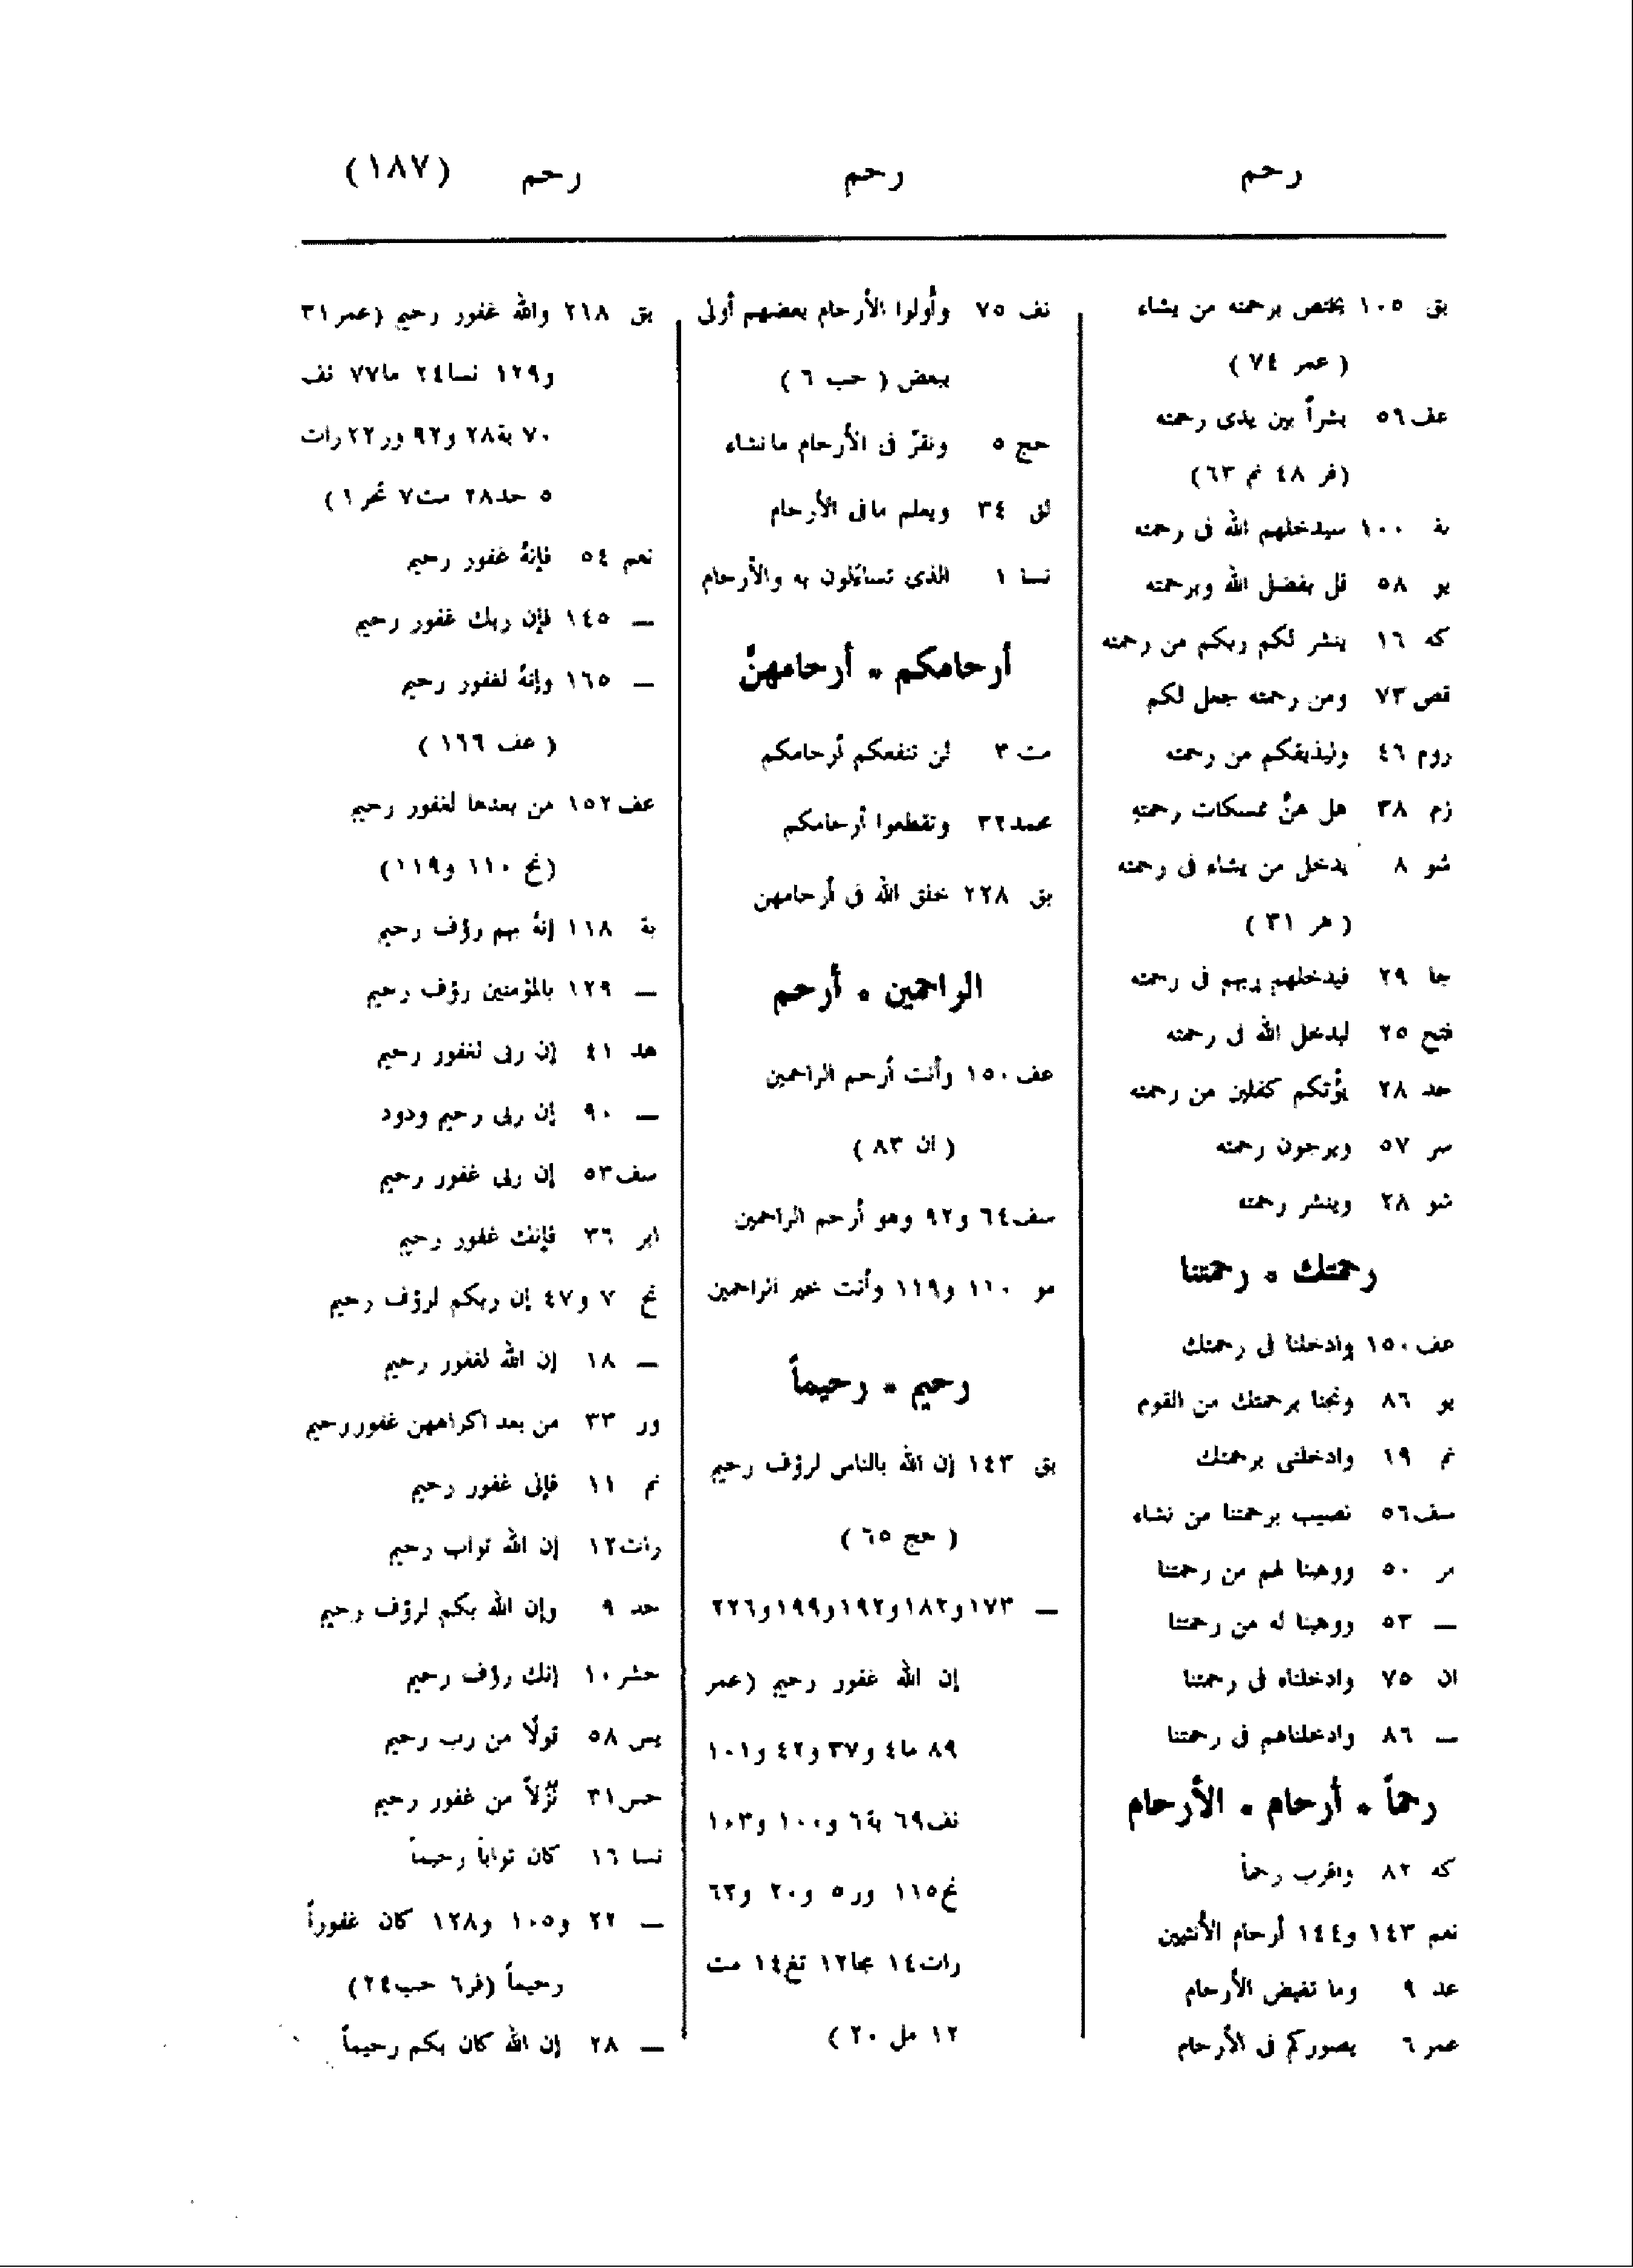 رحم رحم رحم (١٨٧)
بق ١٠٥ يختص برحمته من يشاء
( عمر ٧٤ )
عف ٥٦ بشراً بين يدى رحمته
(فر ٤٨ نم ٦٣)
بة ١٠٠ سيدخلهم الله فى رحمته
يو ٥٨ قل بفضل الله وبرحمته
كه ١٦ ينشر لكم ربكم من رحمته
قص ٧٣ ومن رحمته جعل لكم
روم ٤٦ وليذيقكم من رحمته
زم ٣٨ هل هنَّ ممسكات رحمته
شو ٨ يدخل من يشاء فى رحمته
( هر ٣١ )
جا ٢٩ فيدخلهم ربهم فى رحمته
فتح ٢٥ ليدخل الله فى رحمته
حد ٢٨ يؤتكم كفلين من رحمته
سر ٥٧ ويرجون رحمته
شو ٢٨ وينشر رحمته
رحمتك * رحمتنا
عف ١٥٠ وادخلنا فى رحمتك
يو ٨٦ ونجنا برحمتك من القوم
نم ١٩ وادخلنى برحمتك
سف ٥٦ نصيب برحمتنا من نشاء
مر ٥٠ ووهبنا لهم من رحمتنا
— ٥٣ ووهبنا له من رحمتنا
ان ٧٥ وادخلناه فى رحمتنا
— ٨٦ وادخلناهم فى رحمتنا
رحماً * أرحام * الأرحام
كه ٨٢ واقرب رحماً
نعم ١٤٣ و١٤٤ أرحام الأنثيين
عد ٩ وما تغيض الأرحام
عمر ٦ يصوركم فى الأرحام
نف ٧٥ وأولوا الأرحام بعضهم أولى
ببعض ( حب ٦ )
حج ٥ ونقرّ فى الأرحام ما نشاء
لق ٣٤ ويعلم ما فى الأرحام
نسا ١ الذى تسائلون به والأرحام
أرحامكم * أرحامهنَّ
مت ٣ لن تنفعكم أرحامكم
محمد ٢٢ وتقطعوا أرحامكم
بق ٢٢٨ خلق الله فى أرحامهن
الراحمين * أرحم
عف ١٥٠ وأنت أرحم الراحمين
( ان ٨٣ )
سف ٦٤ و٩٢ وهو أرحم الراحمين
مو ١١٠ و١١٩ وأنت خير الراحمين
رحيم * رحيماً
بق ١٤٣ إن الله بالناس لرؤف رحيم
( حج ٦٥ )
— ١٧٣ و١٨٢ و١٩٢ و١٩٩ و٢٢٦
إن الله غفور رحيم (عمر
٨٩ ما٤ و٣٧ و٤٢ و١٠١
نف٦٩ بة٦ و١٠٠ و١٠٣
نح١١٥ ور٥ و٢٠ و٦٢
رات١٤ مجا١٢ تغ١٤ مت
١٢ مل ٢٠ )
بق ٢١٨ والله غفور رحيم (عمر٣١
و١٢٩ نسا٢٤ ما٧٧ نف
٧٠ بة٢٨ و٩٢ ور٢٢ رات
٥ حد٢٨ مت٧ تحر١ )
نعم ٥٤ فإنهُ غفور رحيم
— ١٤٥ فإن ربك غفور رحيم
— ١٦٥ وإنهُ لغفور رحيم
( عف ١٦٦ )
عف ١٥٢ من بعدها لغفور رحيم
(نح ١١٠ و١١٩)
بة ١١٨ إنهُ بهم رؤف رحيم
— ١٢٩ بالمؤمنين رؤف رحيم
هد ٤١ إن ربى لغفور رحيم
— ٩٠ إن ربى رحيم ودود
سف ٥٣ إن ربى غفور رحيم
ابر ٣٦ فإنك غفور رحيم
نح ٧ و٤٧ إن ربكم لرؤف رحيم
— ١٨ إن الله لغفور رحيم
ور ٣٣ من بعد اكراههن غفور رحيم
نم ١١ فإنى غفور رحيم
رات ١٢ إن الله تواب رحيم
حد ٩ وإن الله بكم لرؤف رحيم
حشر ١٠ إنك رؤف رحيم
يس ٥٨ قولًا من رب رحيم
حس ٣١ نُزُلاً من غفور رحيم
نسا ١٦ كان تواباً رحيماً
— ٢٢ و١٠٥ و١٢٨ كان غفوراً
رحيماً (فر٦ حب٢٤)
— ٢٨ إن الله كان بكم رحيماً